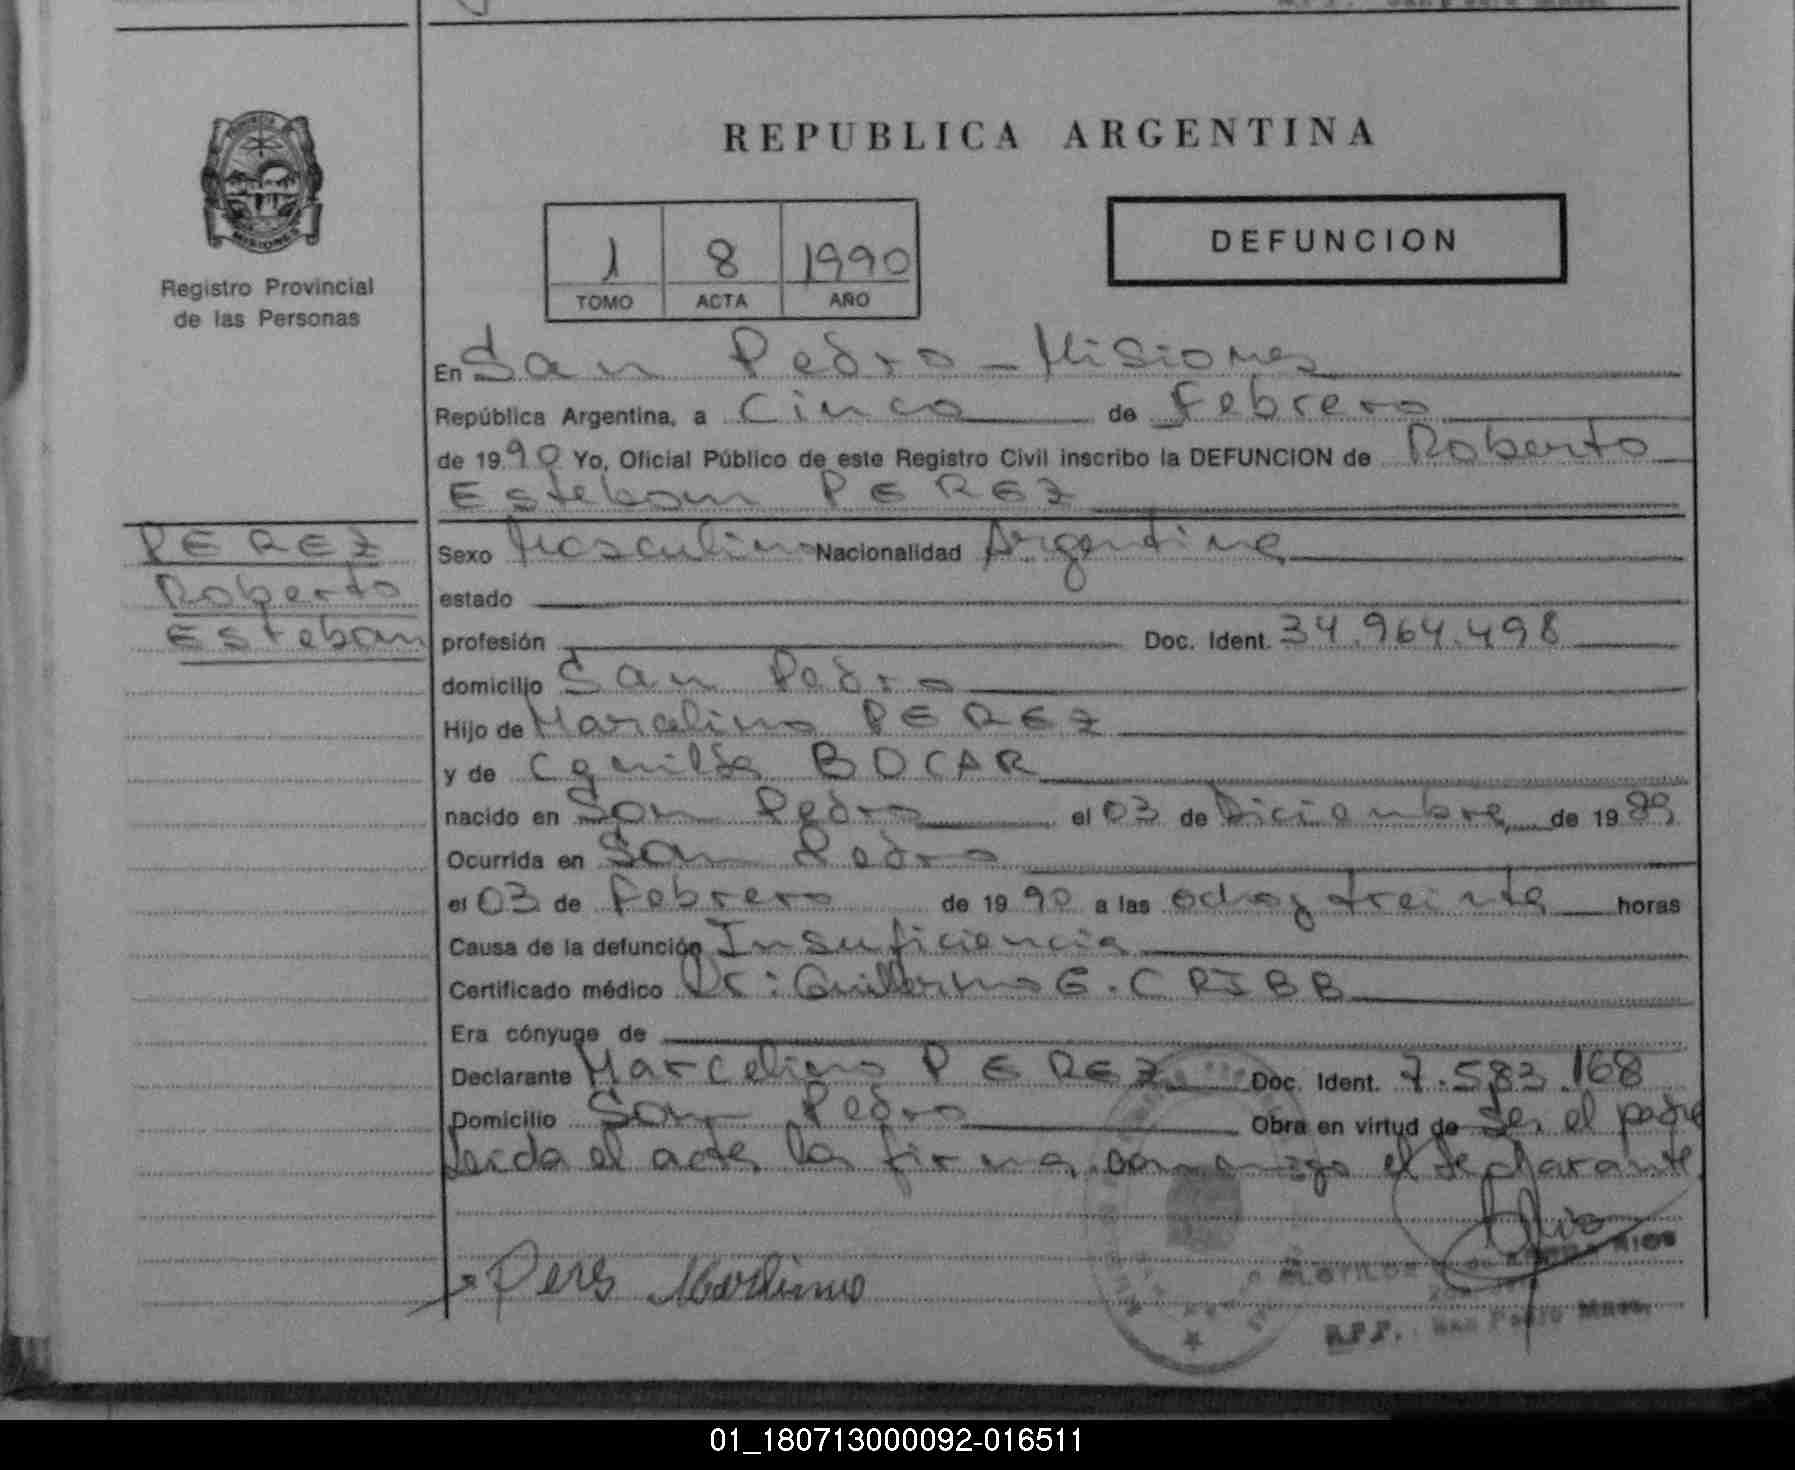 REPUBLICA ARGENTINA
MISIONES
Registro Provincial
de las Personas
1 8 1990
TOMO ACTA AÑO
DEFUNCION
En San Pedro - Misiones
República Argentina, a Cinco de Febrero
de 1990 Yo, Oficial Público de este Registro Civil inscribo la DEFUNCION de Roberto
Esteban PEREZ
PEREZ
Roberto
Esteban
Sexo Masculino Nacionalidad Argentina
estado
profesión Doc. Ident. 34.964.498
domicilio San Pedro
Hijo de Marcelino PEREZ
y de BOCAR
nacido en San Pedro el 03 de Diciembre de 1989
Ocurrida en San Pedro
el 03 de Febrero de 1990 a las ocho y treinta horas
Causa de la defunción Insuficiencia
Certificado médico Dr: Guillermo G. CRIBB
Era cónyuge de
Declarante Marcelino PEREZ Doc. Ident. 7.583.168
Domicilio San Pedro Obra en virtud de Ser el padre
Leida el acta la firma conmigo el declarante
Peres Marcelino
R.P.P. San Pedro Mnes.
01_180713000092-016511